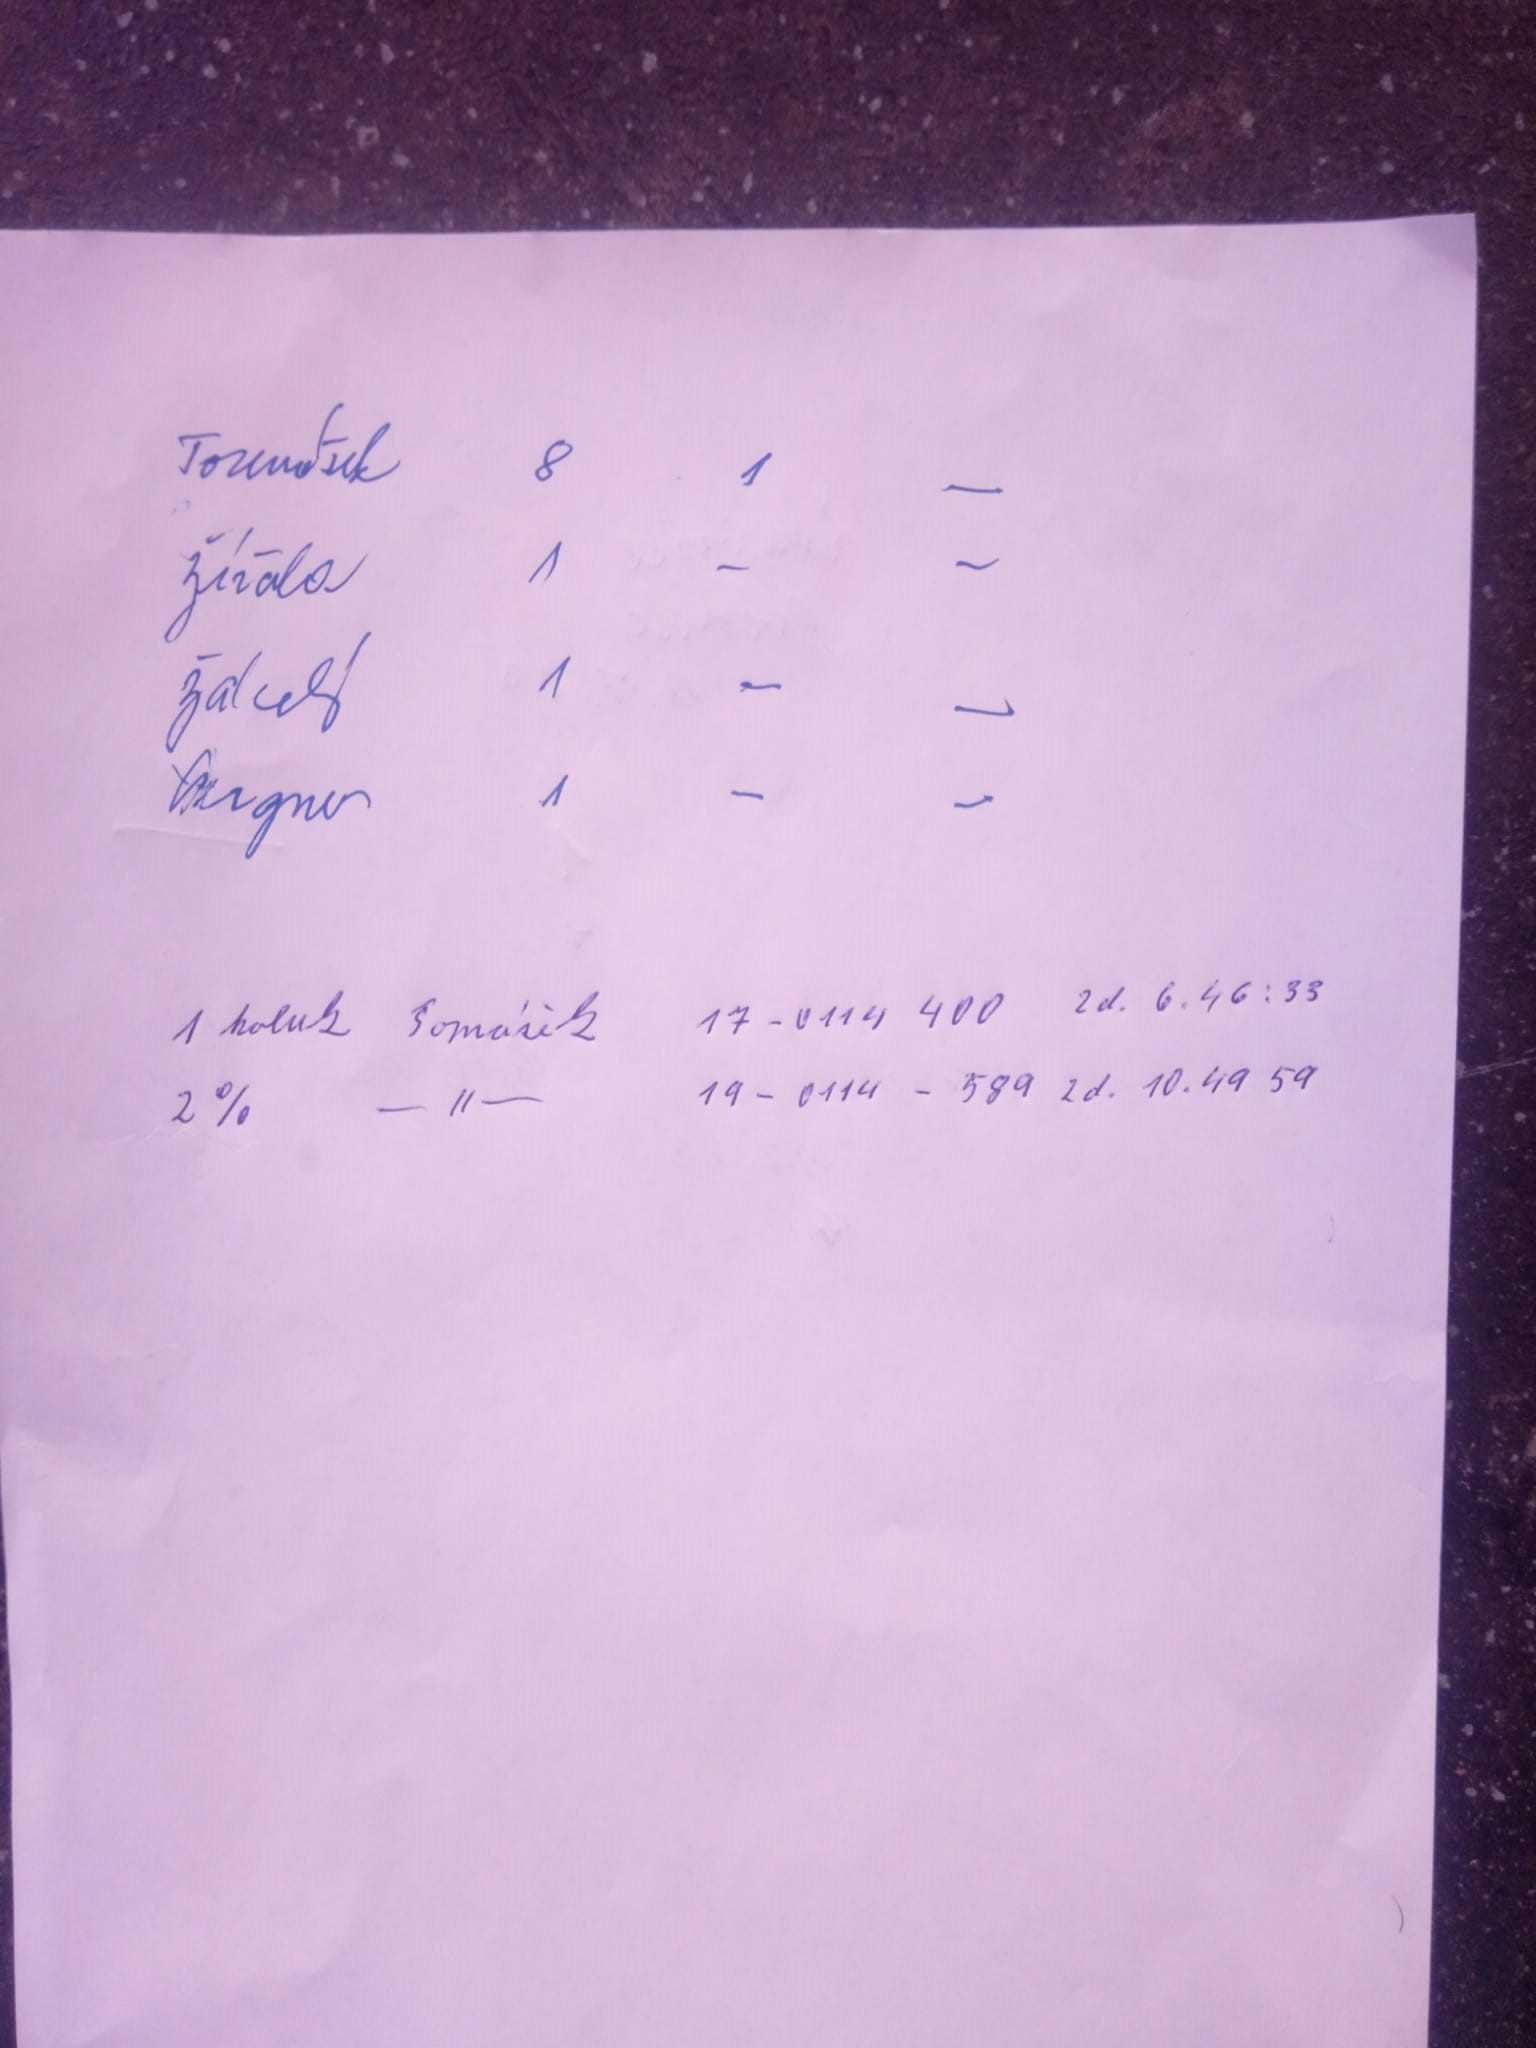 Tomášek 8 1 —
Žížala 1 - -
Žálský 1 - —
Wagner 1 - -
1 holub Tomášek 17-0114 400 2d. 6.46:33
2 % — 〃 — 19-0114-589 2d. 10.49 59